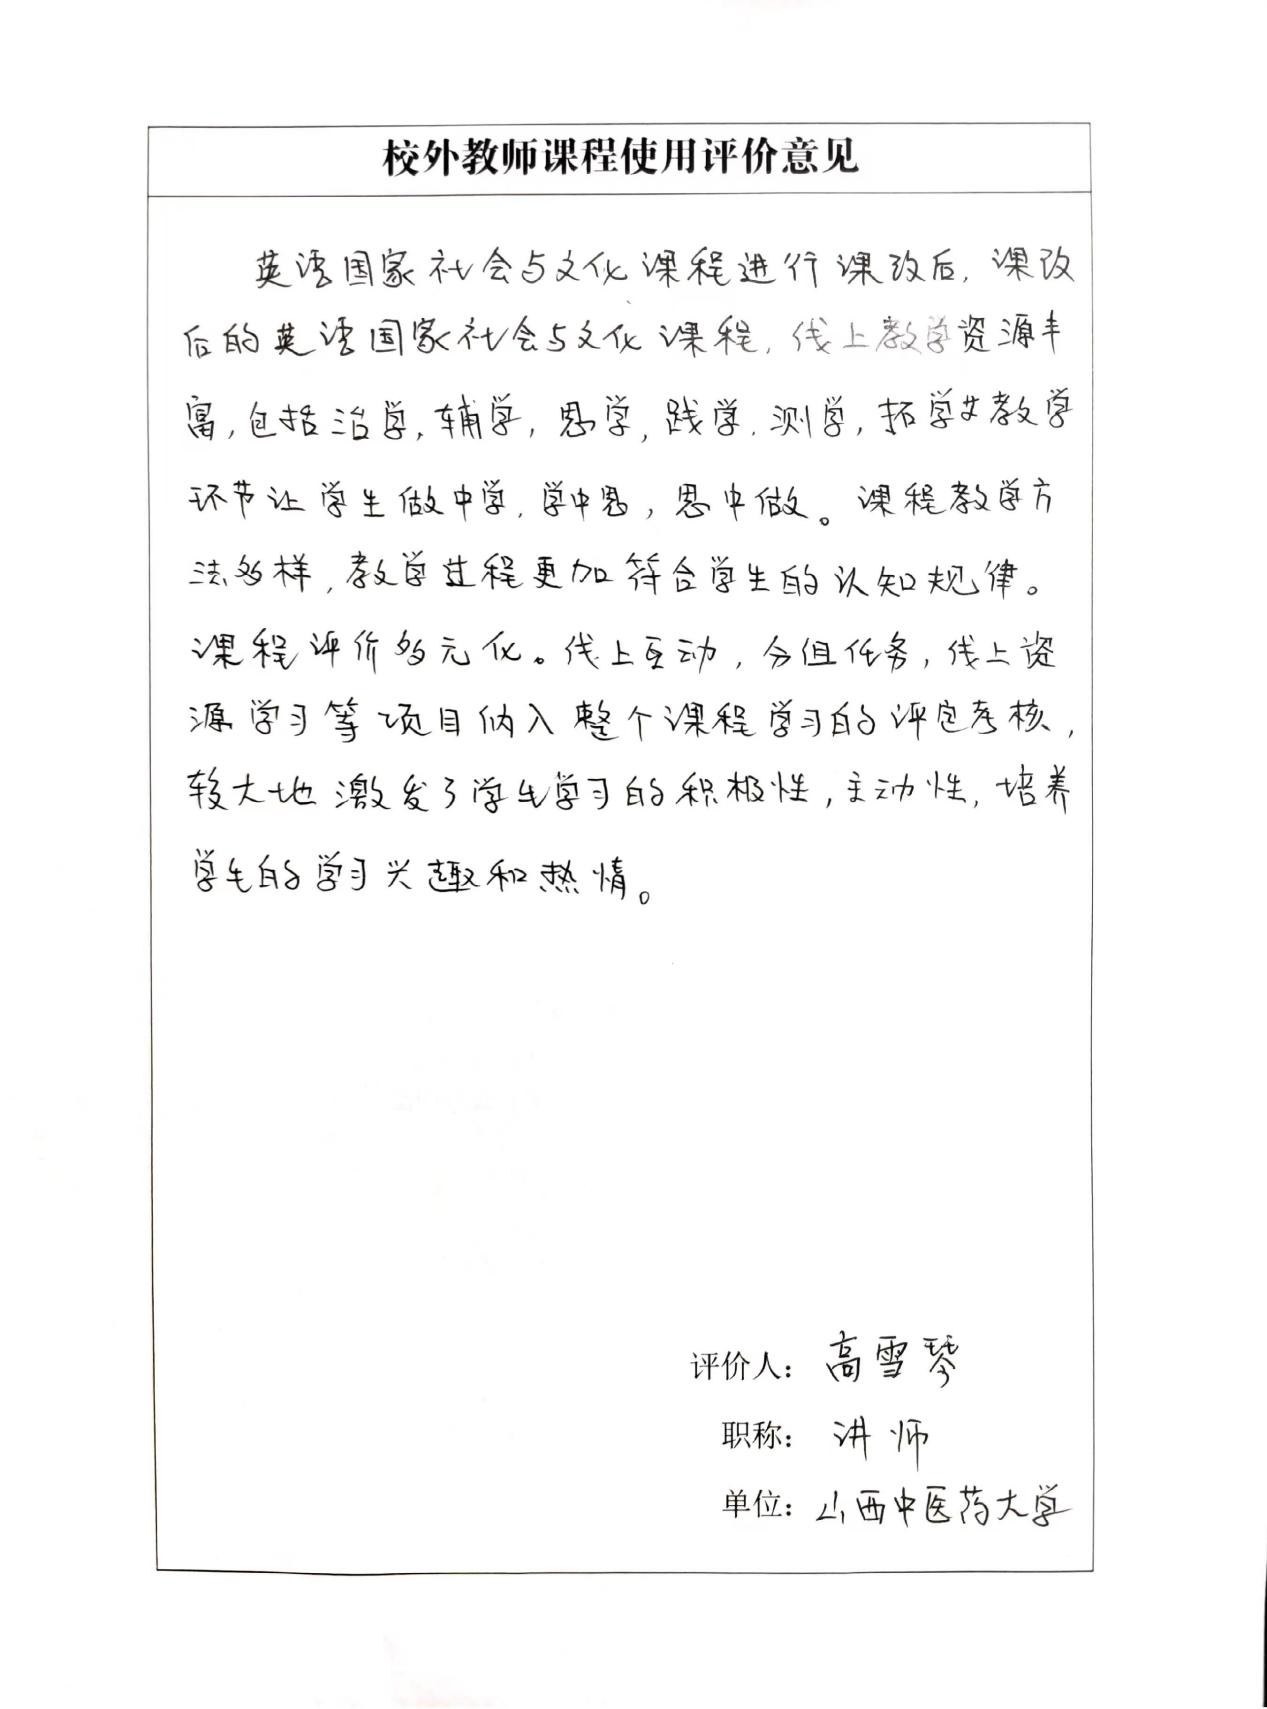 校外教师课程使用评价意见
英语国家社会与文化课程进行课改后，课改
后的英语国家社会与文化课程，线上教学资源丰
富，包括治学，辅学，思学，践学，测学，拓学六教学
环节让学生做中学，学中思，思中做。课程教学方
法多样，教学过程更加符合学生的认知规律。
课程评价多元化。线上互动，分组任务，线上资
源学习等项目纳入整个课程学习的评定考核，
较大地激发了学生学习的积极性，主动性，培养
学生的学习兴趣和热情。
评价人：高雪琴
职称：讲师
单位：山西中医药大学